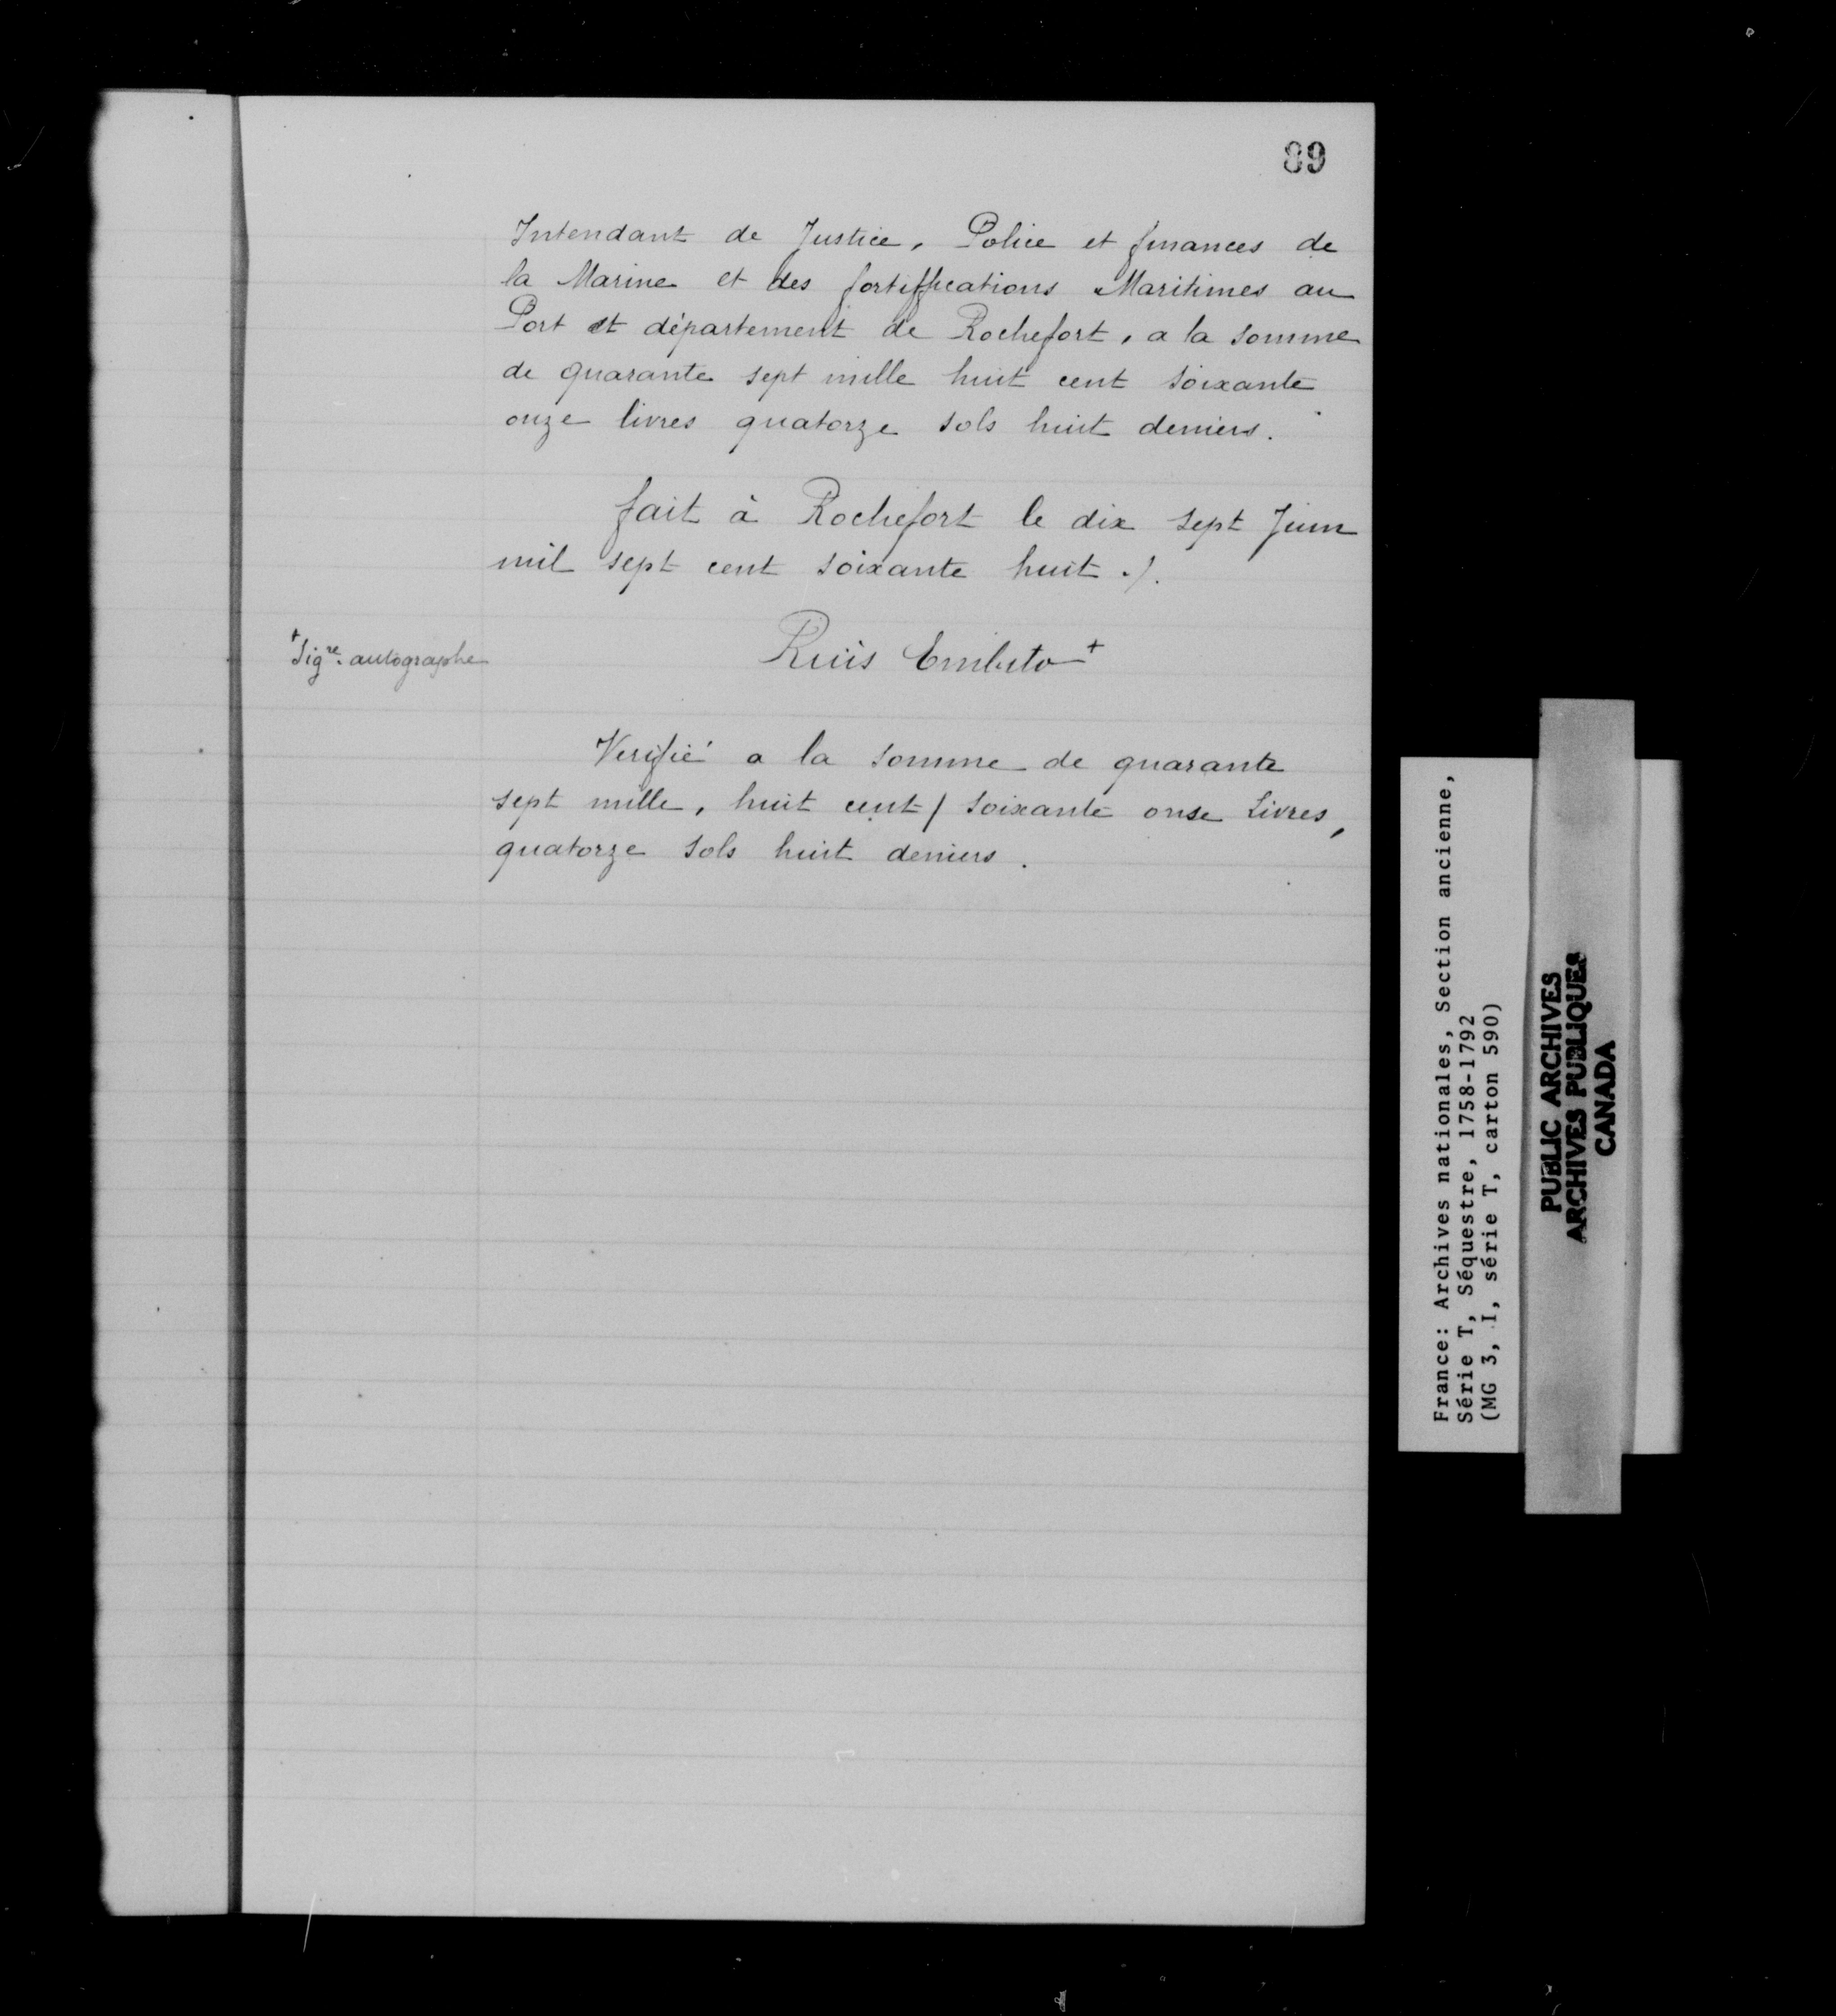 89
Intendant de Justice, Police et finances de
la Marine et des fortiffications Maritimes au
Port et département de Rochefort, a la somme
de quarante sept mille huit cent soixante
onze livres quatorze sols huit deniers.
fait à Rochefort le dix sept Juin
mil sept cent soixante huit ./.
+ Sigre. autographe
Ruis Embito +
Verifié a la somme de quarante
sept mille, huit cent / soixante onse Livres,
quatorze sols huit deniers.
France: Archives nationales, Section ancienne,
Série T, Séquestre, 1758-1792
(MG 3, I, série T, carton 590)
PUBLIC ARCHIVES
ARCHIVES PUBLIQUES
CANADA